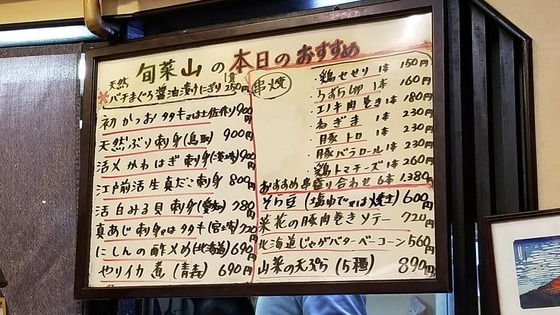 旬菜山の本日のおすすめ
天然バチまぐろ醤油漬けにぎり 1貫 250円
初かつおタタキまたは土佐作り 900円
天然ぶり刺身(鳥取) 900円
活〆かわはぎ刺身 900円
江戸前活生真だこ刺身 800円
活白みる貝刺身(愛知) 780円
真あじ刺身又はタタキ 720円
にしんの酢〆め(北海道) 690円
やりイカ煮(青森) 690円
串焼
・鶏せせり 1本 150円
・うずら卵 1本 160円
・エノキ肉巻き 1本 180円
・ねぎま 1本 230円
・豚トロ 1本 230円
・豚バラロール 1本 230円
・鶏トマチーズ 1本 260円
おすすめ串盛り合わせ 6本 1.380円
そら豆(塩ゆで又は焼き) 600円
菜花の豚肉巻きソテー 720円
北海道じゃがバターベーコーン 560円
山菜の天ぷら(5種) 890円